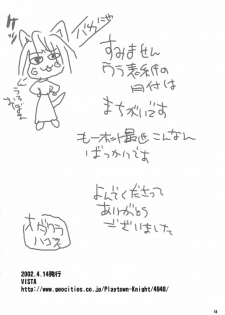 すみません
ウラ表紙の
日付は
まちがいです
もーホント最近こんなん
ばっかりです
よんでくださって
ありがとう
ございました
2002.4.14発行
VISTA
http://www.geocities.co.jp/Playtown-Knight/4948/